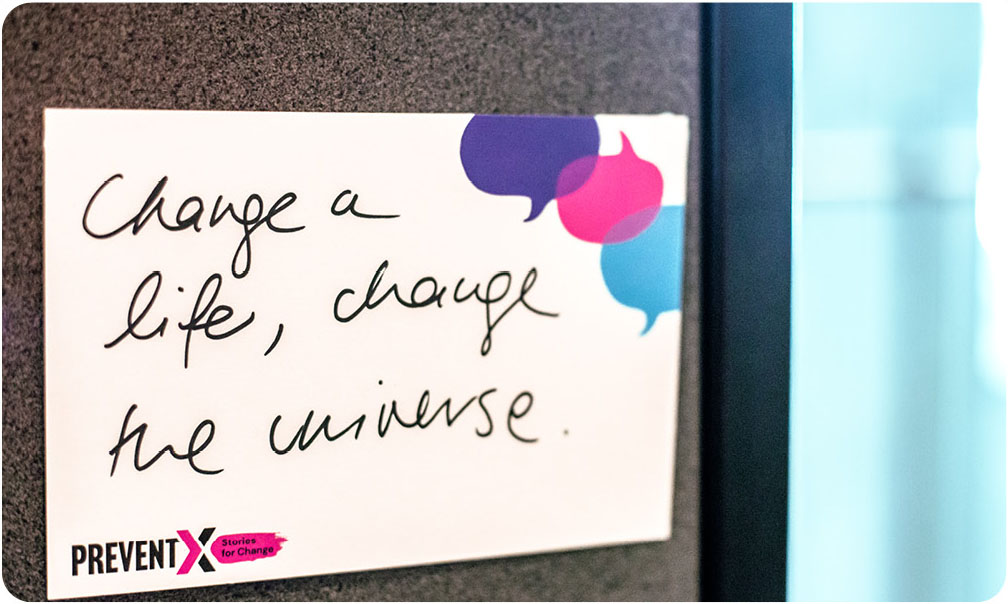 Change a
life, change
the universe.
PREVENTX Stories
for Change